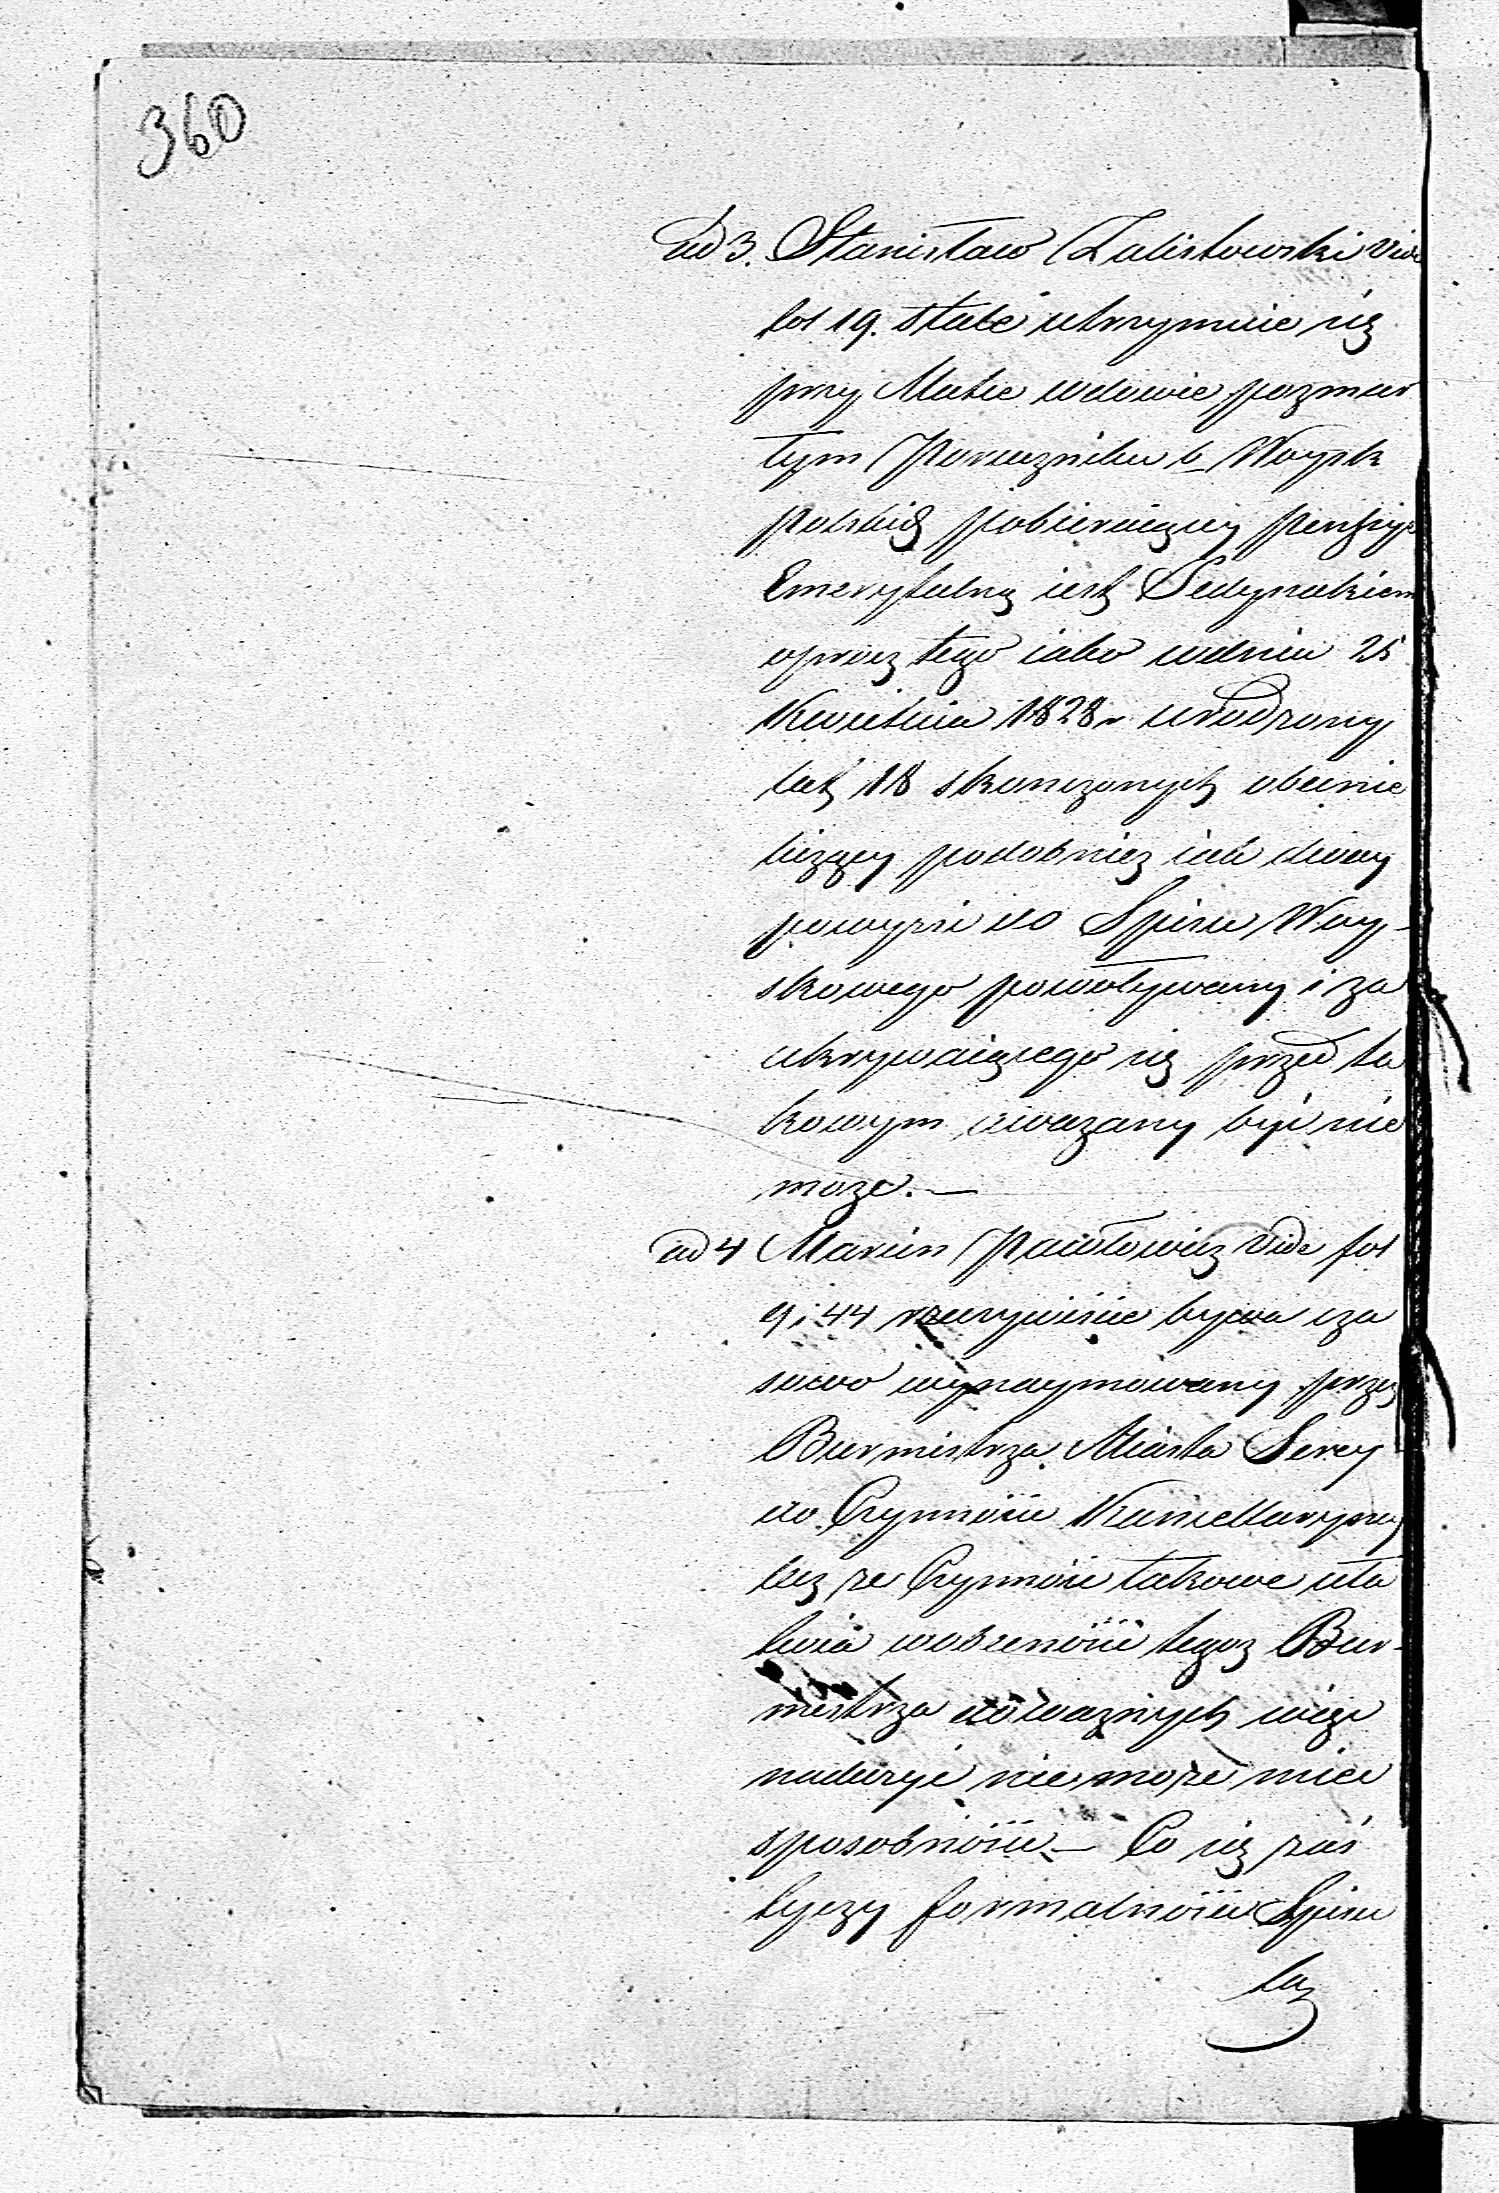 360
ad 3. Stanisław Zalistowski Vide
fol 19. stale utrzymuie się
przy Matce wdowie po zmar
łym Poruczniku b Woysk
Polskich pobieraiącey pensyę
Emerytalną iest Jedynakiem
oprocz tego iako w dniu 25
Kwietnia 1828 r. urodzony
lat 18 skonczonych obecnie
liczący podobniez iak dway
powyżsi do Spisu Woy-
skowego powoływany i za
ukrywaiącego się przed ta
kowym uwazany być nie
moze. —
ad 4 Marcin Pawłowicz Vide fol
9 i 44 rzeczywiście bywa cza
sowo wynaymowany przez
Burmistrza Miasta Serey
do Czynności Kancellaryiney
lecz że Czynności takowe uła
twia w obecności tegoz Bur-
mistrza do waznych więc
naduzyć nie może mieć
sposobności — Co się zaś
tyczy formalności Spisu
ta